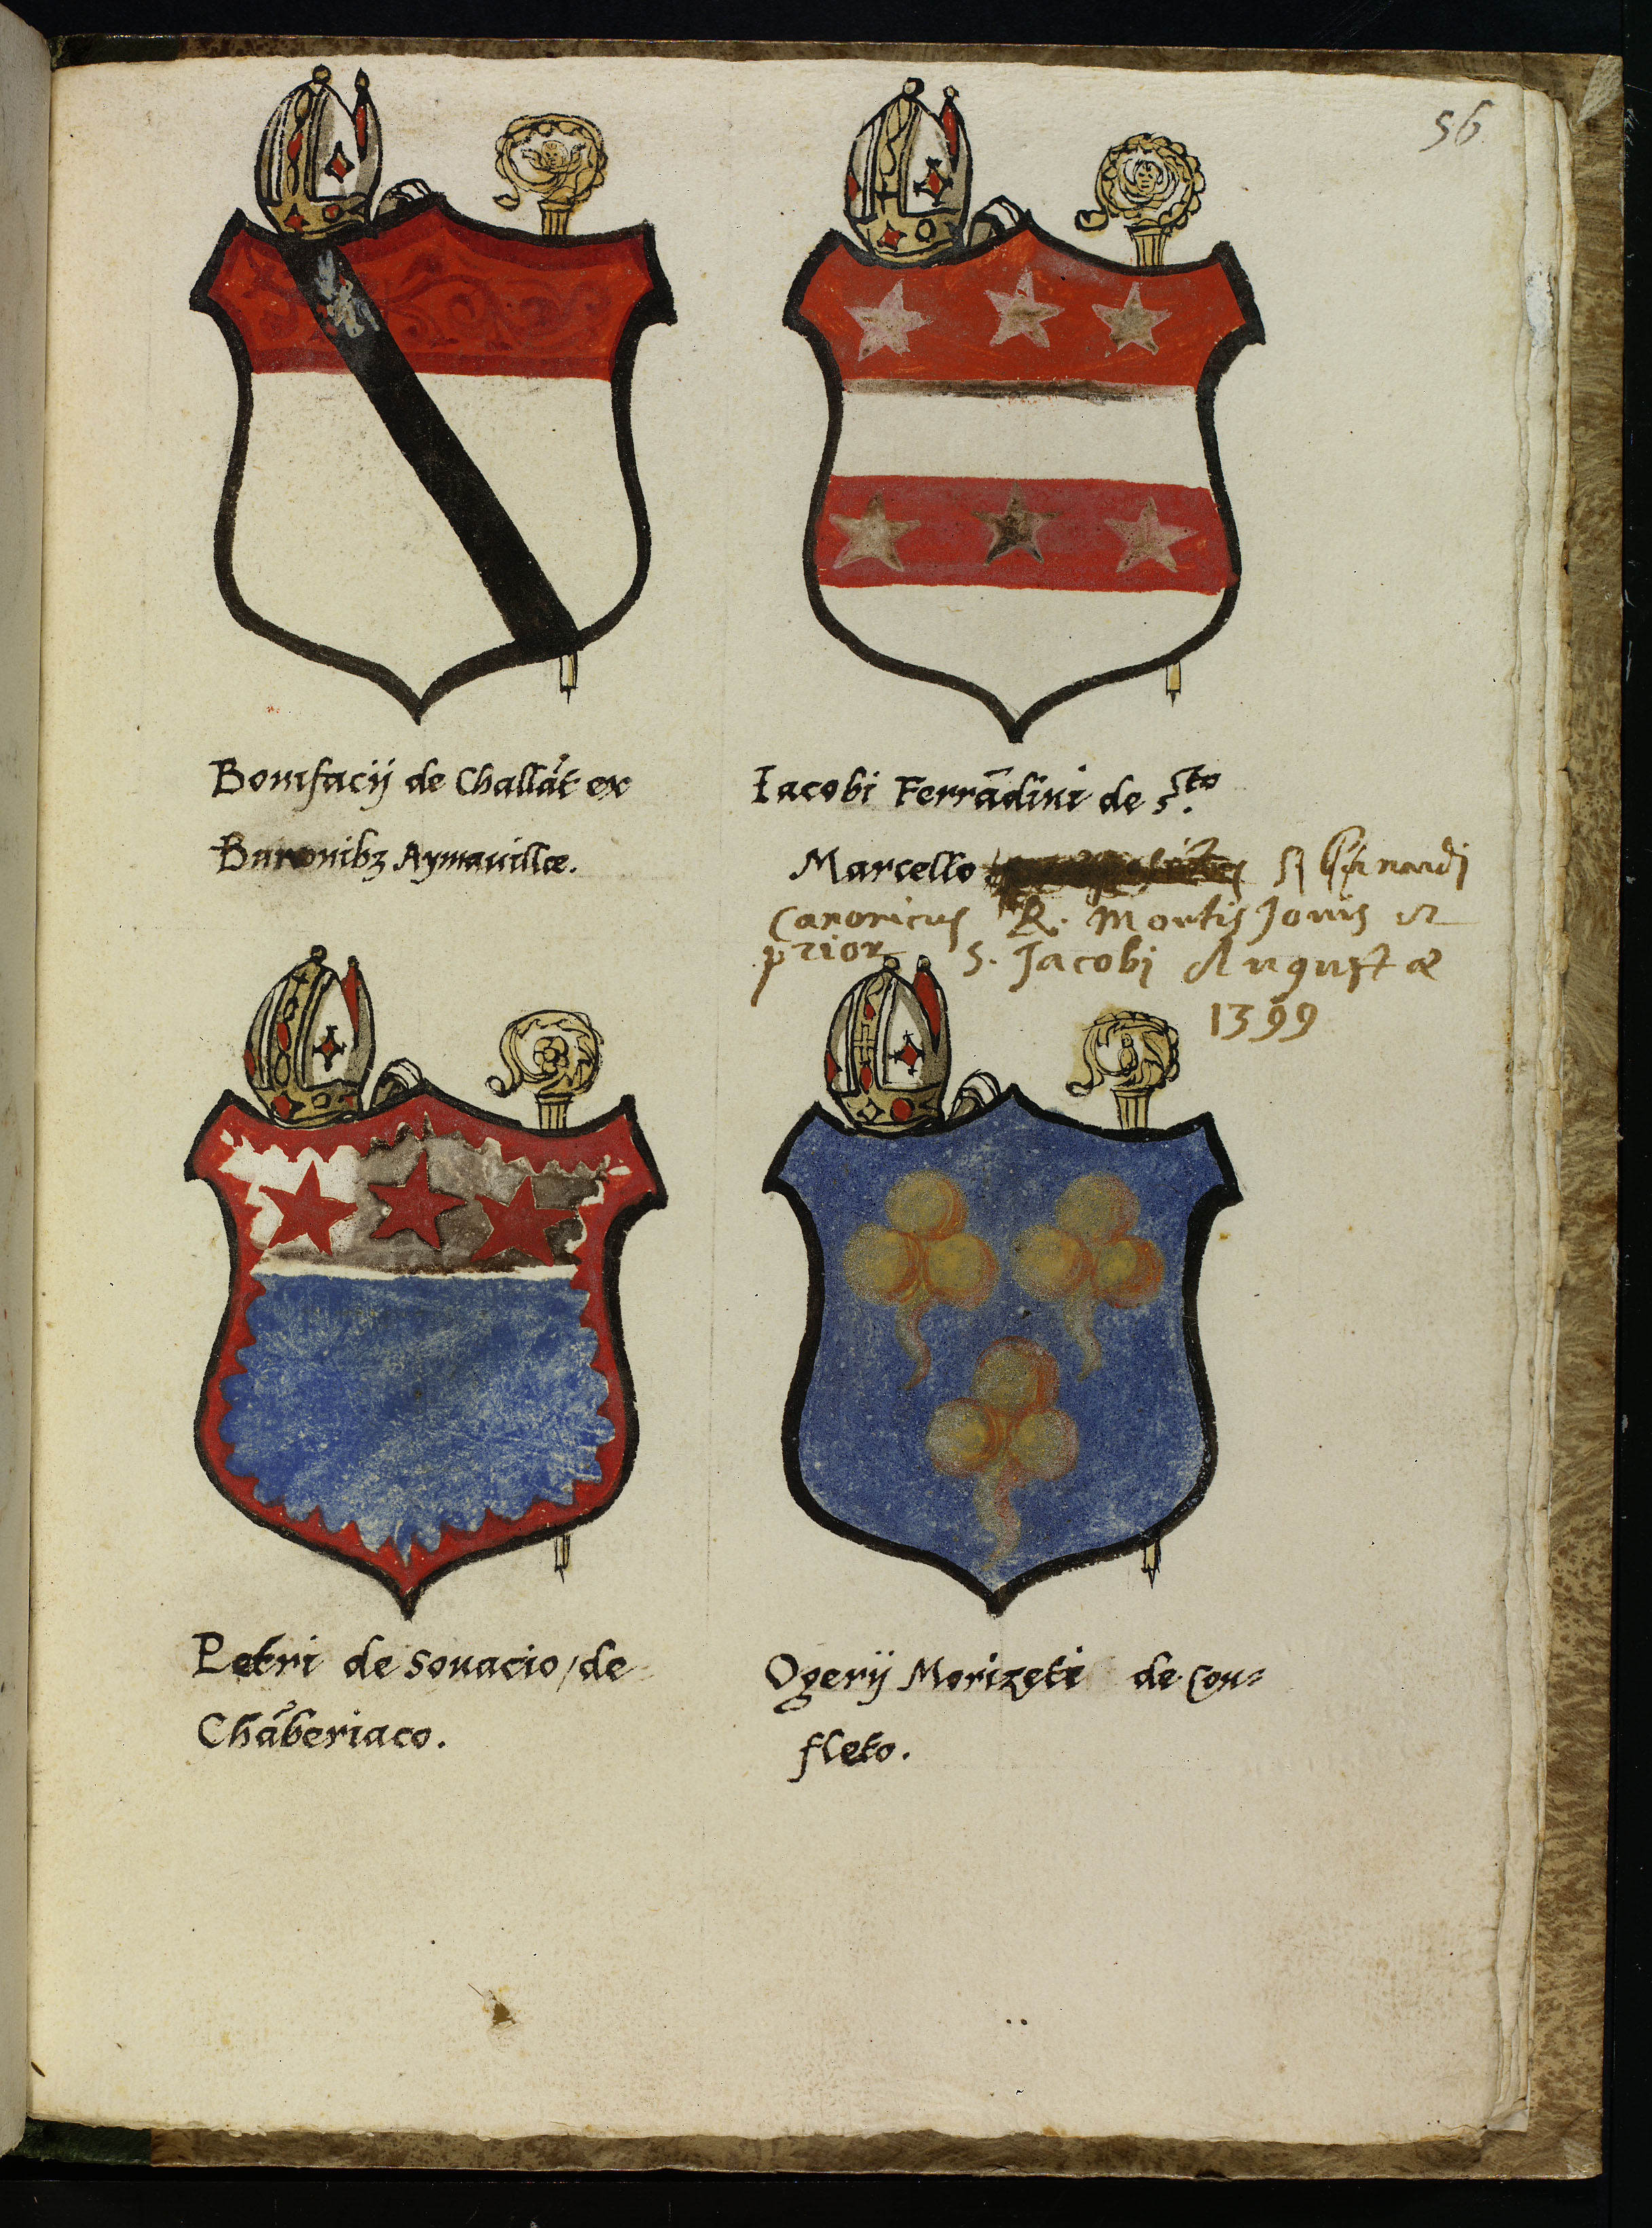 56
Bonifacij de Challāt ex
Baronibʒ Aymauillæ.
Iacobi Ferrādini de Sto.
Marcello
Canonicus R. Montis Jouis et
prior S. Jacobi Augustæ
1399
Petri de Sonacio, de
Chāberiaco.
Ogerij Morizeti de Con=
fleto.